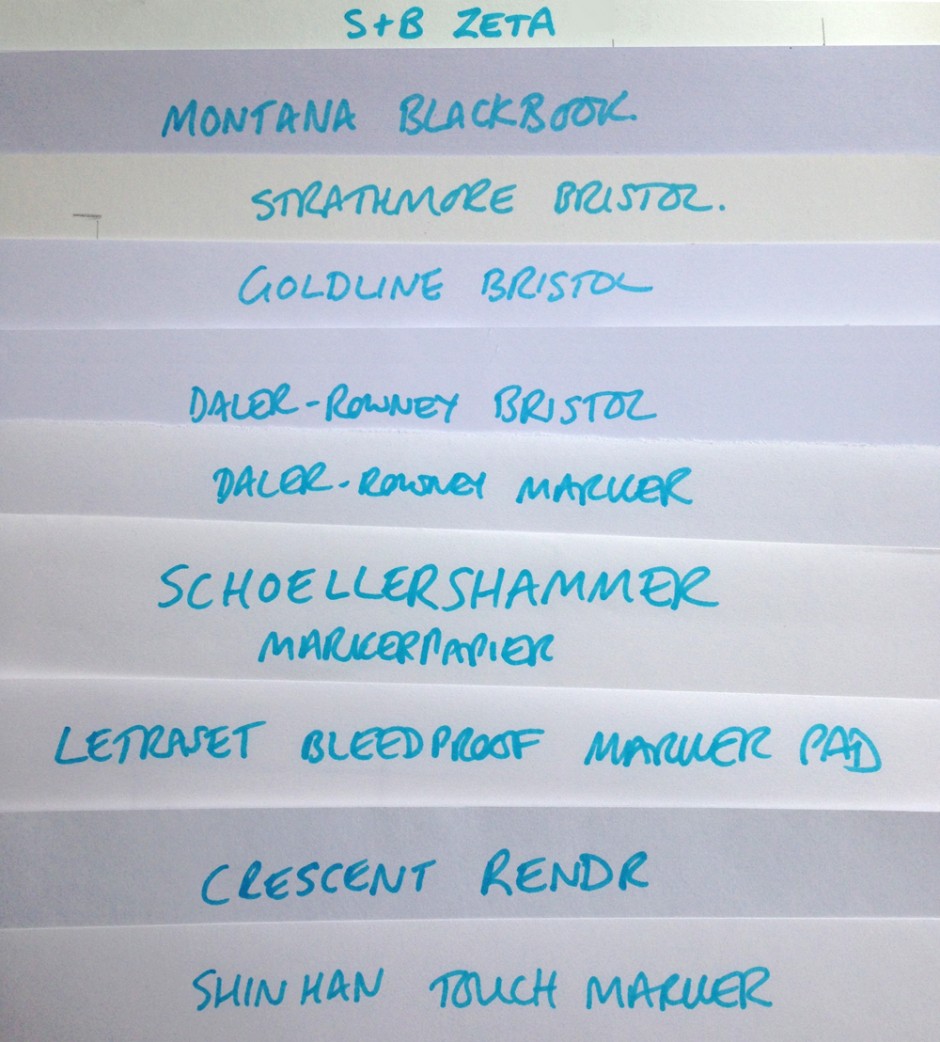 S+B ZETA
MONTANA BLACKBOOK.
STRATHMORE BRISTOL.
GOLDLINE BRISTOL
DALER-ROWNEY BRISTOL
DALER-ROWNEY MARKER
SCHOELLERSHAMMER
MARKERPAPIER
LETRASET BLEEDPROOF MARKER PAD
CRESCENT RENDR
SHINHAN TOUCH MARKER